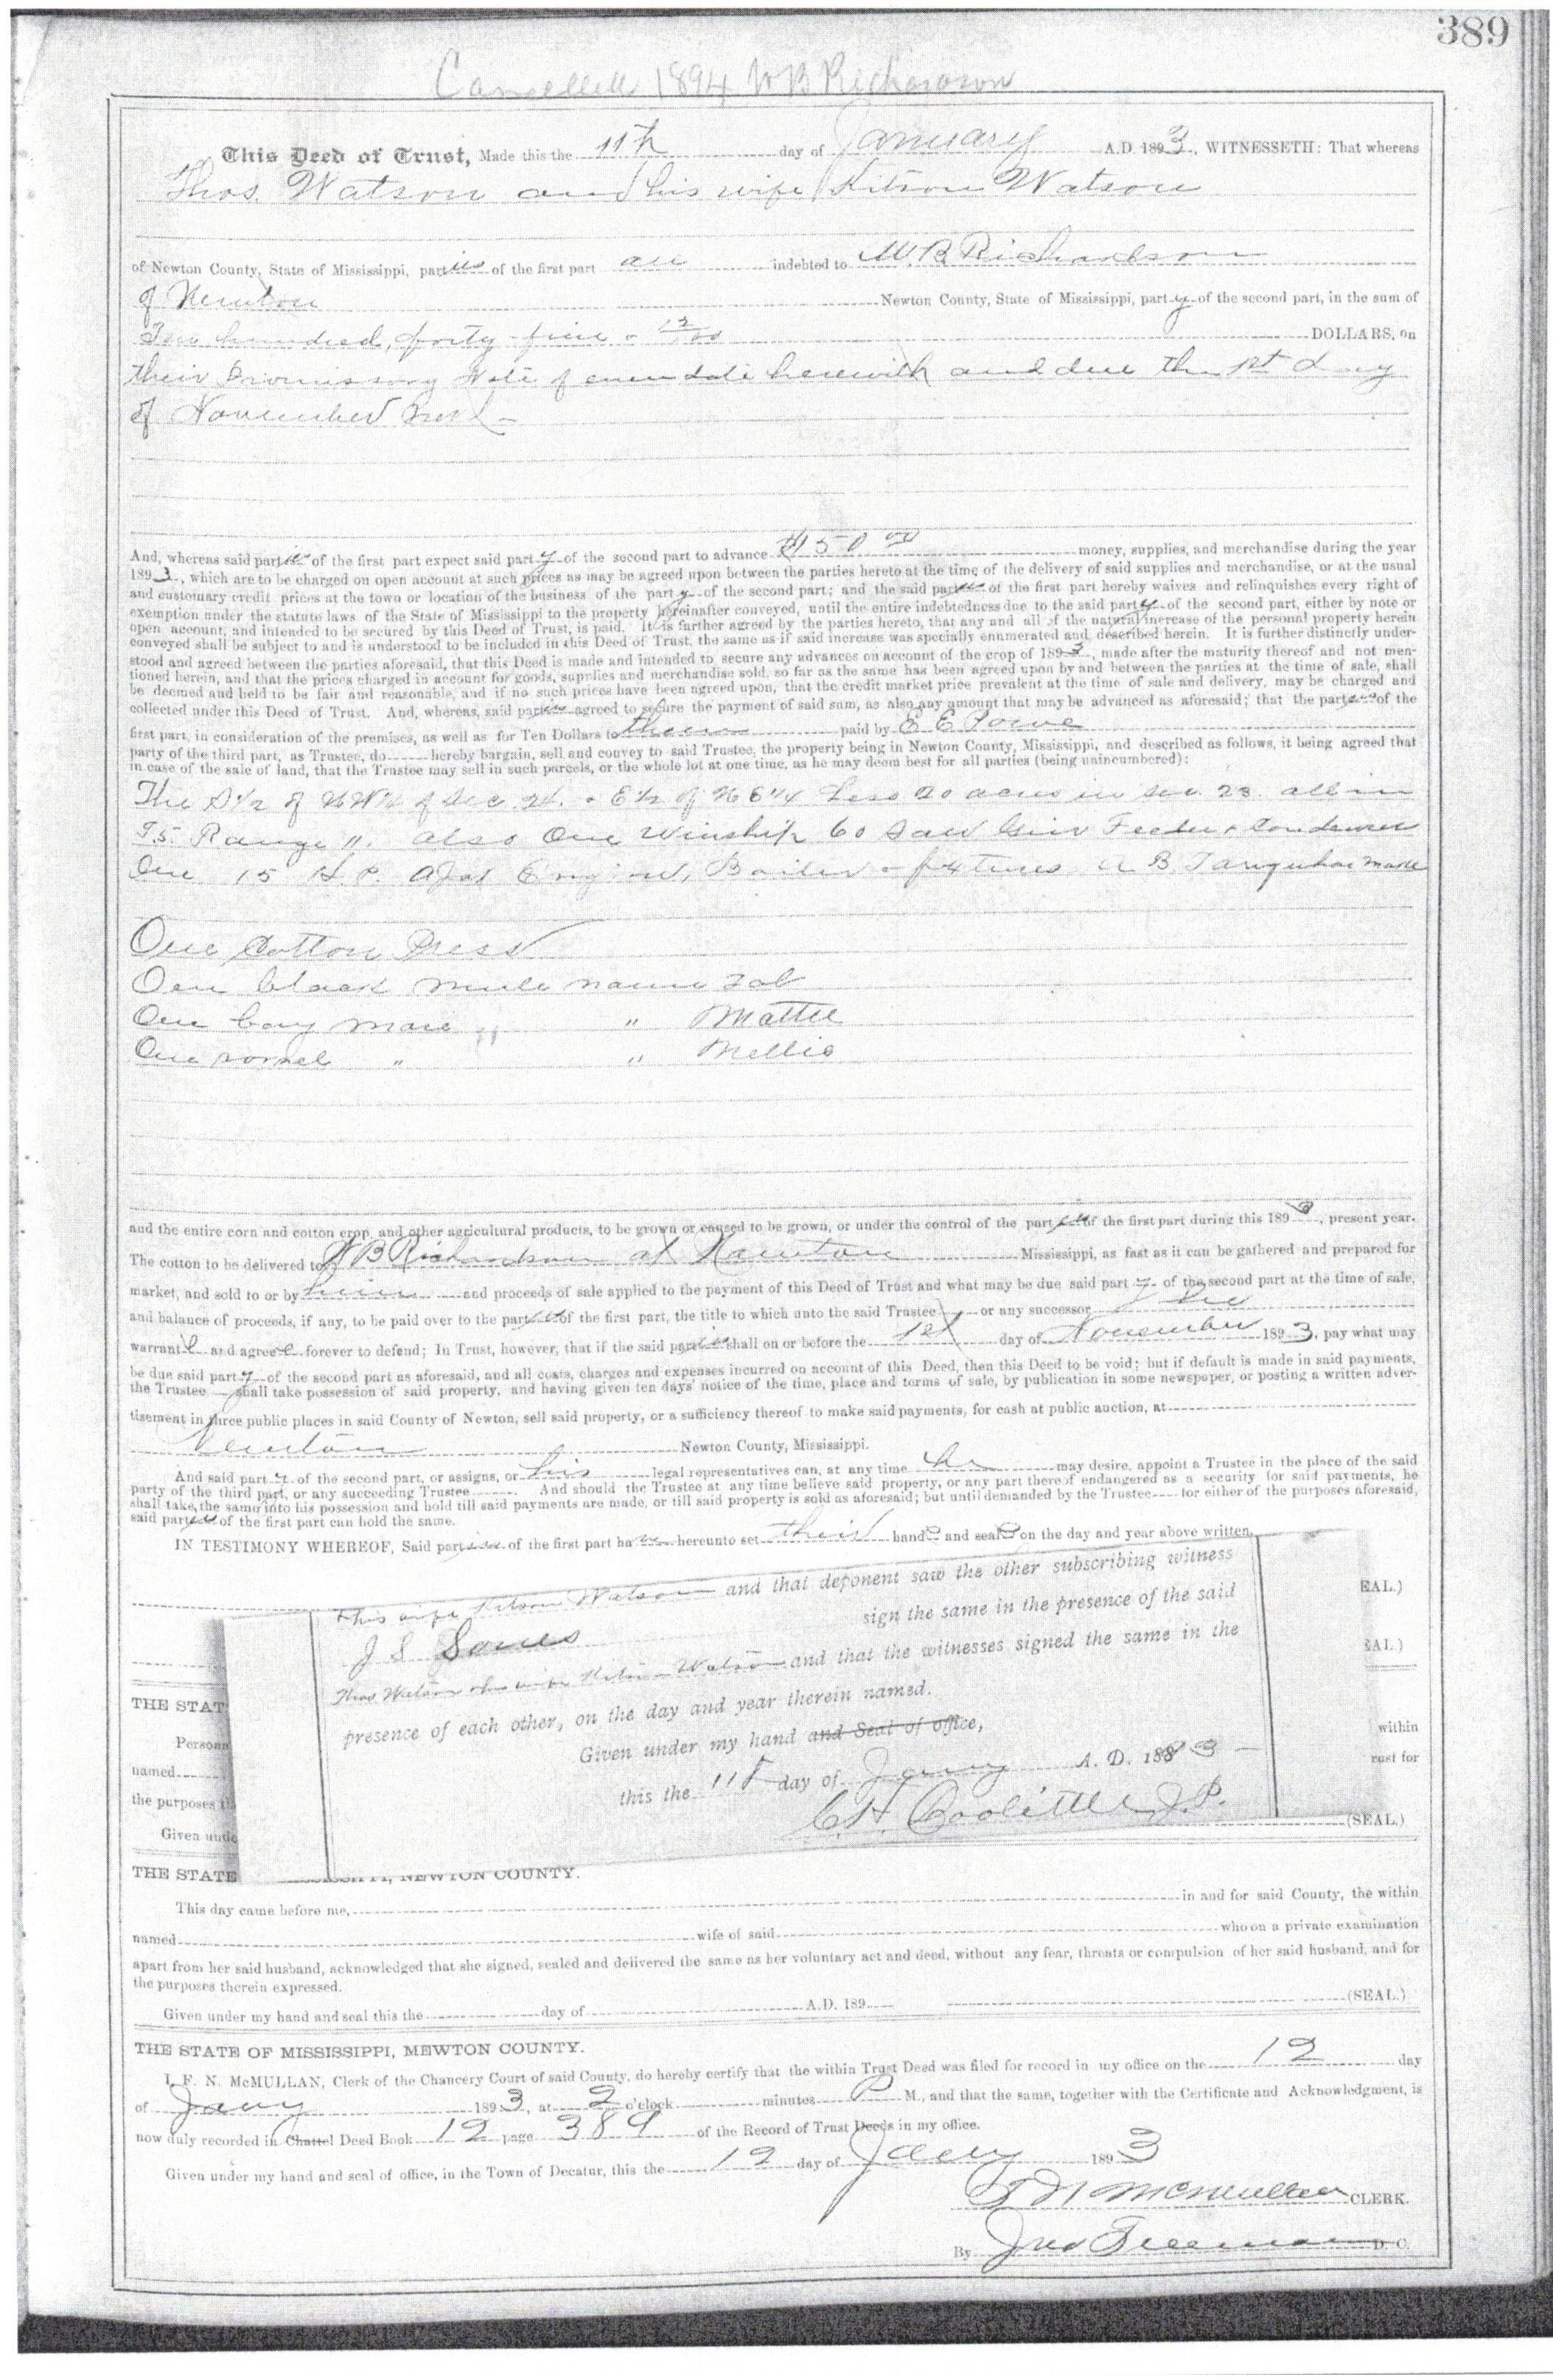 389
Cancelled 1894 WB Richardson
This Deed of Trust, Made this the 11th day of January A.D. 1893, WITNESSETH: That whereas
Thos. Watson and his wife Kitson Watson
of Newton County, State of Mississippi, parties of the first part are indebted to W.B. Richardson
of Newton Newton County, State of Mississippi, party of the second part, in the sum of
Two hundred, forty-five & 12/100 DOLLARS, on
their Promissory Note of even date herewith and due the 1st day
of November next
And, whereas said parties of the first part expect said party of the second part to advance $150 00 money, supplies, and merchandise during the year
1893, which are to be charged on open account at such prices as may be agreed upon between the parties hereto at the time of the delivery of said supplies and merchandise, or at the usual
and customary credit prices at the town or location of the business of the party of the second part; and the said parties of the first part hereby waives and relinquishes every right of
exemption under the statute laws of the State of Mississippi to the property hereinafter conveyed, until the entire indebtedness due to the said party of the second part, either by note or
open account, and intended to be secured by this Deed of Trust, is paid. It is further agreed by the parties hereto, that any and all of the natural increase of the personal property herein
conveyed shall be subject to and is understood to be included in this Deed of Trust, the same as if said increase was specially enumerated and described herein. It is further distinctly under-
stood and agreed between the parties aforesaid, that this Deed is made and intended to secure any advances on account of the crop of 1893, made after the maturity thereof and not men-
tioned herein, and that the prices charged in account for goods, supplies and merchandise sold, so far as the same has been agreed upon by and between the parties at the time of sale, shall
be deemed and held to be fair and reasonable, and if no such prices have been agreed upon, that the credit market price prevalent at the time of sale and delivery, may be charged and
collected under this Deed of Trust. And, whereas, said parties agreed to secure the payment of said sum, as also any amount that may be advanced as aforesaid; that the parties of the
first part, in consideration of the premises, as well as for Ten Dollars to them paid by E E
party of the third part, as Trustee, do hereby bargain, sell and convey to said Trustee, the property being in Newton County, Mississippi, and described as follows, it being agreed that
in case of the sale of land, that the Trustee may sell in such parcels, or the whole lot at one time, as he may deem best for all parties (being unincumbered):
The S1/2 of NW1/4 of Sec. 24. & E1/2 of NE1/4 Less 20 acres in sec. 23. all in
T5. Range 11. also One Winship 60 Saw Gin Feeder & Condenser
One 15 H.P. Ajax Engine, Boiler & fixtures A B Farquhar make
One Cotton Press
One black mule name
One bay mare " Mattie
One sorrel " " Nellie
and the entire corn and cotton crop, and other agricultural products, to be grown or caused to be grown, or under the control of the parties of the first part during this 1893, present year.
The cotton to be delivered to W B Richardson at Newton Mississippi, as fast as it can be gathered and prepared for
market, and sold to or by him and proceeds of sale applied to the payment of this Deed of Trust and what may be due said party of the second part at the time of sale,
and balance of proceeds, if any, to be paid over to the parties of the first part, the title to which unto the said Trustee or any successor
warrant and agree forever to defend; In Trust, however, that if the said parties shall on or before the 1st day of November 1893, pay what may
be due said party of the second part as aforesaid, and all costs, charges and expenses incurred on account of this Deed, then this Deed to be void; but if default is made in said payments,
the Trustee shall take possession of said property, and having given ten days' notice of the time, place and terms of sale, by publication in some newspaper, or posting a written adver-
tisement in three public places in said County of Newton, sell said property, or a sufficiency thereof to make said payments, for cash at public auction, at
Newton Newton County, Mississippi.
And said party of the second part, or assigns, or his legal representatives can, at any time he may desire, appoint a Trustee in the place of the said
party of the third part, or any succeeding Trustee. And should the Trustee at any time believe said property, or any part thereof endangered as a security for said payments, he
shall take the same into his possession and hold till said payments are made, or till said property is sold as aforesaid; but until demanded by the Trustee for either of the purposes aforesaid,
said parties of the first part can hold the same.
IN TESTIMONY WHEREOF, Said parties of the first part have hereunto set their hands and seals on the day and year above written.
& his wife Kitson Watson and that deponent saw the other subscribing witness
EAL.)
J S sign the same in the presence of the said
EAL.)
Thos Watson & his wife Kitson Watson and that the witnesses signed the same in the
THE STAT
presence of each other, on the day and year therein named.
Person within
Given under my hand and Seal of office,
named rust for
this the 11th day of Jany A. D. 1893
the purposes th
C.H. Doolittle J.P.
Given unde (SEAL.)
THE STATE NEWTON COUNTY.
This day came before me, in and for said County, the within
named wife of said who on a private examination
apart from her said husband, acknowledged that she signed, sealed and delivered the same as her voluntary act and deed, without any fear, threats or compulsion of her said husband, and for
the purposes therein expressed.
Given under my hand and seal this the day of A.D. 189 (SEAL.)
THE STATE OF MISSISSIPPI, MEWTON COUNTY.
I, F. N. McMULLAN, Clerk of the Chancery Court of said County, do hereby certify that the within Trust Deed was filed for record in my office on the 12 day
of Jany 1893, at 2 o'clock minutes P M., and that the same, together with the Certificate and Acknowledgment, is
now duly recorded in Chattel Deed Book 12 page 389 of the Record of Trust Deeds in my office.
Given under my hand and seal of office, in the Town of Decatur, this the 12 day of Jany 1893
F N McMullan CLERK.
By Jno Freeman D. C.